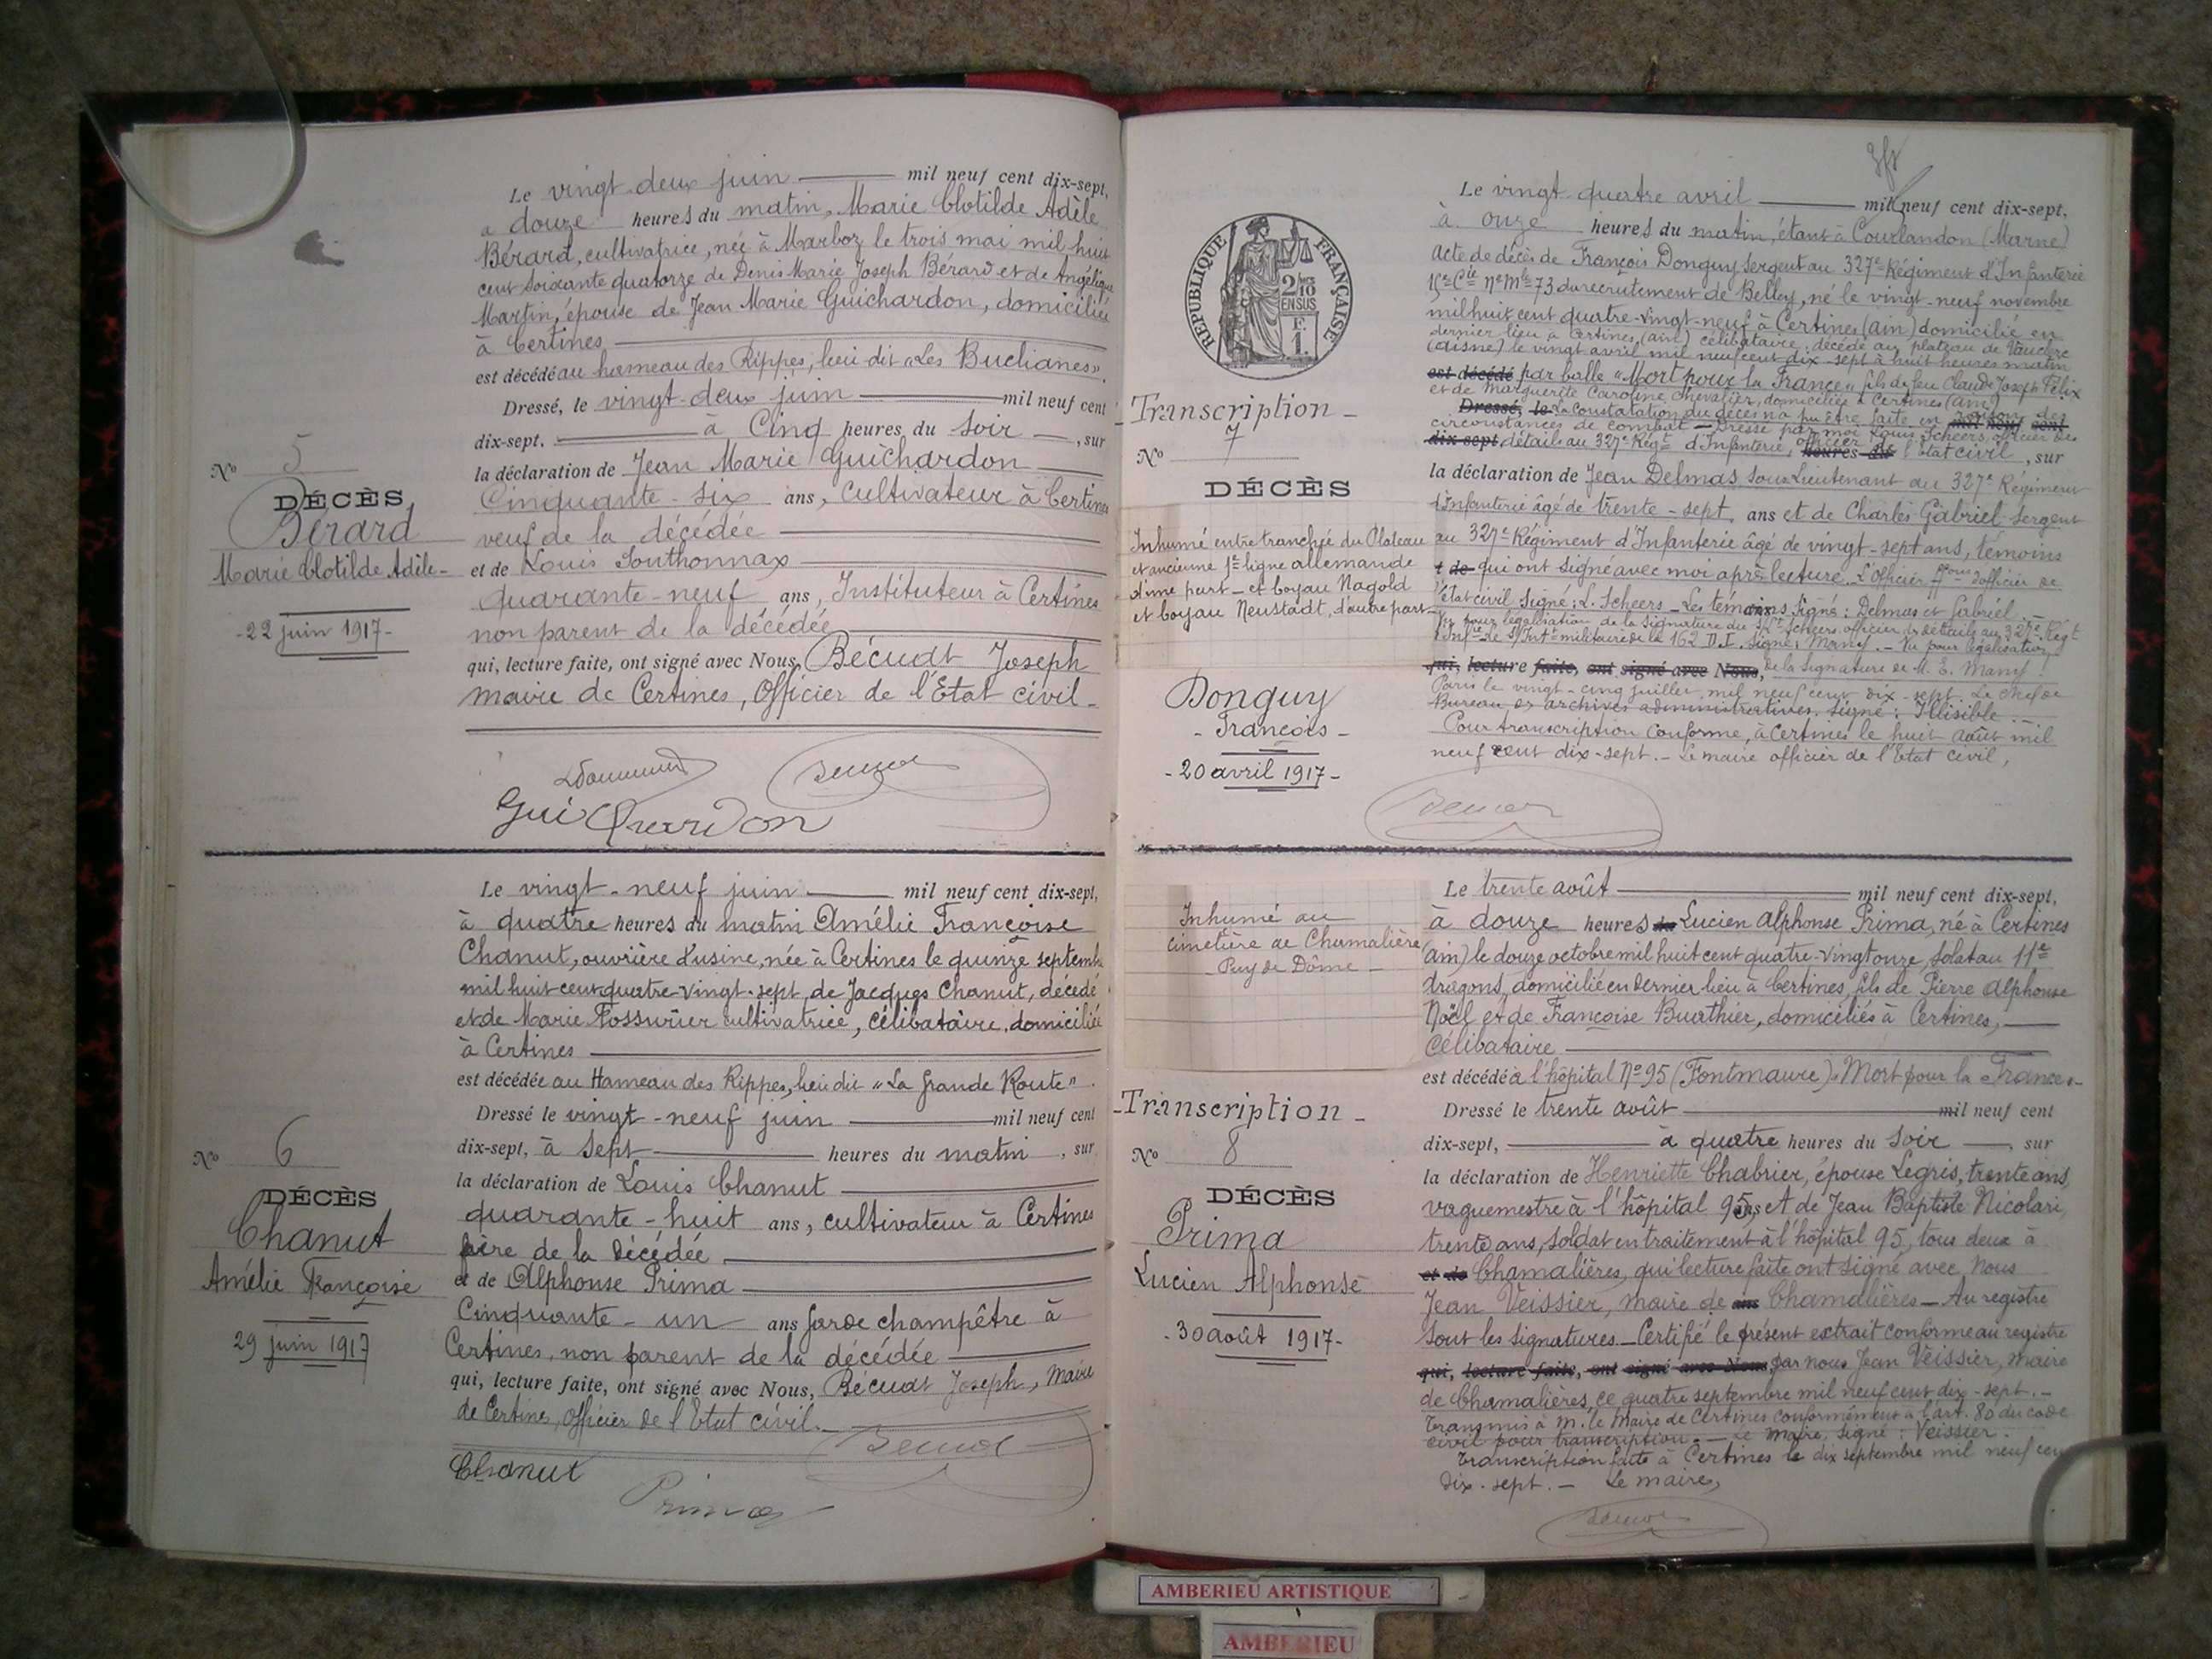 Le vingt-deux juin mil neuf cent dix-sept,
à douze heures du matin, Marie Clotilde Adèle
Bérard, cultivatrice, née à Marboz le trois mai mil huit
cent soixante quatorze de Denis Marie Joseph Bérard et de Angélique
Martin, épouse de Jean Marie Guichardon, domiciliée
à Certines
est décédé au hameau des Rippes, lieu dit « Les Buclianes ».
Dressé, le vingt-deux juin mil neuf cent
dix-sept, à Cinq heures du soir, sur
la déclaration de Jean Marie Guichardon
Cinquante-six ans, cultivateur à Certines
veuf de la décédée
et de Louis Southonnax
quarante-neuf ans, Instituteur à Certines
non parent de la décédée
qui, lecture faite, ont signé avec Nous, Bécudt Joseph
maire de Certines, Officier de l'Etat civil -
Guichardon
No 5
DÉCÈS
Bérard
Marie Clotilde Adèle -
- 22 juin 1917 -
Le vingt-neuf juin mil neuf cent dix-sept,
à quatre heures du matin Amélie Françoise
Chanut, ouvrière d'usine, née à Certines le quinze septembre
mil huit cent quatre-vingt-sept, de Jacques Chanut, décédé
et de Marie Fossurier cultivatrice, célibataire, domiciliée
à Certines
est décédée au Hameau des Rippes, lieu dit « La Grande Route ».
Dressé le vingt-neuf juin mil neuf cent
dix-sept, à sept heures du matin, sur
la déclaration de Louis Chanut
quarante-huit ans, cultivateur à Certines
frère de la décédée
et de Alphonse Prima
Cinquante-un ans garde champêtre à
Certines, non parent de la décédée
qui, lecture faite, ont signé avec Nous, Bécudt Joseph, Maire
de Certines, Officier de l'Etat civil.
Chanut
Prima
No 6
DÉCÈS
Chanut
Amélie Françoise
29 juin 1917
Le vingt quatre avril mil neuf cent dix-sept,
à onze heures du matin, étant à Courlandon (Marne)
Acte de décès de François Donguy Sergent au 327e Régiment d'Infanterie
15e Cie no Mle 73 du recrutement de Belley, né le vingt-neuf novembre
mil huit cent quatre-vingt-neuf à Certines (ain) domicilié en
dernier lieu à Certines, (ain) célibataire, décédé au plateau de Vauclerc
(aisne) le vingt avril mil neuf cent dix-sept à huit heures matin
est décédé par balle « Mort pour la France » fils de feu Claude Joseph Félix
et de Marguerite Caroline Chevalier, domiciliée à Certines (ain)
Dressé, le La Constatation du décès n'a pu être faite en raison des
circonstances de combat - Dressé par moi Louis Scheers, officier des
dix-sept détails au 327e Régt d'Infanterie, officier de heures du l'état civil, sur
la déclaration de Jean Delmas Sous Lieutenant au 327e Régiment
d'Infanterie âgé de trente-sept ans et de Charles Gabriel Sergent
au 327e Régiment d'Infanterie âgé de vingt-sept ans, témoins
et de qui ont signé avec moi après lecture. L'Officier d'officier de
l'état civil Signé : L. Scheers - Les témoins Signé : Delmas et Gabriel -
Vu pour légalisation de la signature du Scheers officier des détails au 327e Régt
d'Infrie Le S/Intt militaire de la 162 D.I. signé : Marny - Vu pour légalisation
qui, lecture faite, ont signé avec Nous, de la signature de M. E. Marny
Paris le vingt-cinq juillet mil neuf cent dix-sept Le Chef de
Bureau des archives administratives. Signé : Illisible
Pour transcription conforme, à Certines le huit août mil
neuf cent dix-sept. - Le maire officier de l'Etat civil,
REPUBLIQUE FRANÇAISE
2/10 EN SUS
F. 1.
Transcription -
No 7
DÉCÈS
Inhumé entre tranchée du Plateau
et ancienne 1e ligne allemande
d'une part - et boyau Nagold
et boyau Neustadt, d'autre part
Donguy
- François -
- 20 avril 1917 -
Le trente août mil neuf cent dix-sept,
à douze heures du Lucien Alphonse Prima, né à Certines
(ain) le douze octobre mil huit cent quatre-vingt onze, soldat au 11e
dragons, domicilié en dernier lieu à Certines, fils de Pierre Alphonse
Noël et de Françoise Buathier, domiciliés à Certines,
Célibataire
est décédé à l'hôpital No 95 (Fontmaure) « Mort pour la France » -
Dressé le trente août mil neuf cent
dix-sept, à quatre heures du soir, sur
la déclaration de Henriette Chabrier, épouse Legris, trente ans,
vaguemestre à l'hôpital 95, et de Jean Baptiste Nicolari,
trente ans, soldat en traitement à l'hôpital 95, tous deux à
et de Chamalières, qui lecture faite ont signé avec Nous
Jean Veissier, maire de ans Chamalières - Au registre
sont les signatures. - Certifié le présent extrait conforme au registre
qui, lecture faite, ont signé avec Nous par nous Jean Veissier, maire
de Chamalières, ce quatre septembre mil neuf cent dix-sept. -
Transmis à M. le Maire de Certines conformément à l'art. 80 du code
civil pour transcription. - Le maire, signé : Veissier.
Transcription faite à Certines le dix septembre mil neuf cent
dix-sept. - Le maire,
Inhumé au
cimetière de Chamalière
Puy de Dôme -
- Transcription -
No 8
DÉCÈS
Prima
Lucien Alphonse
- 30 août 1917 -
AMBERIEU ARTISTIQUE
AMBERIEU